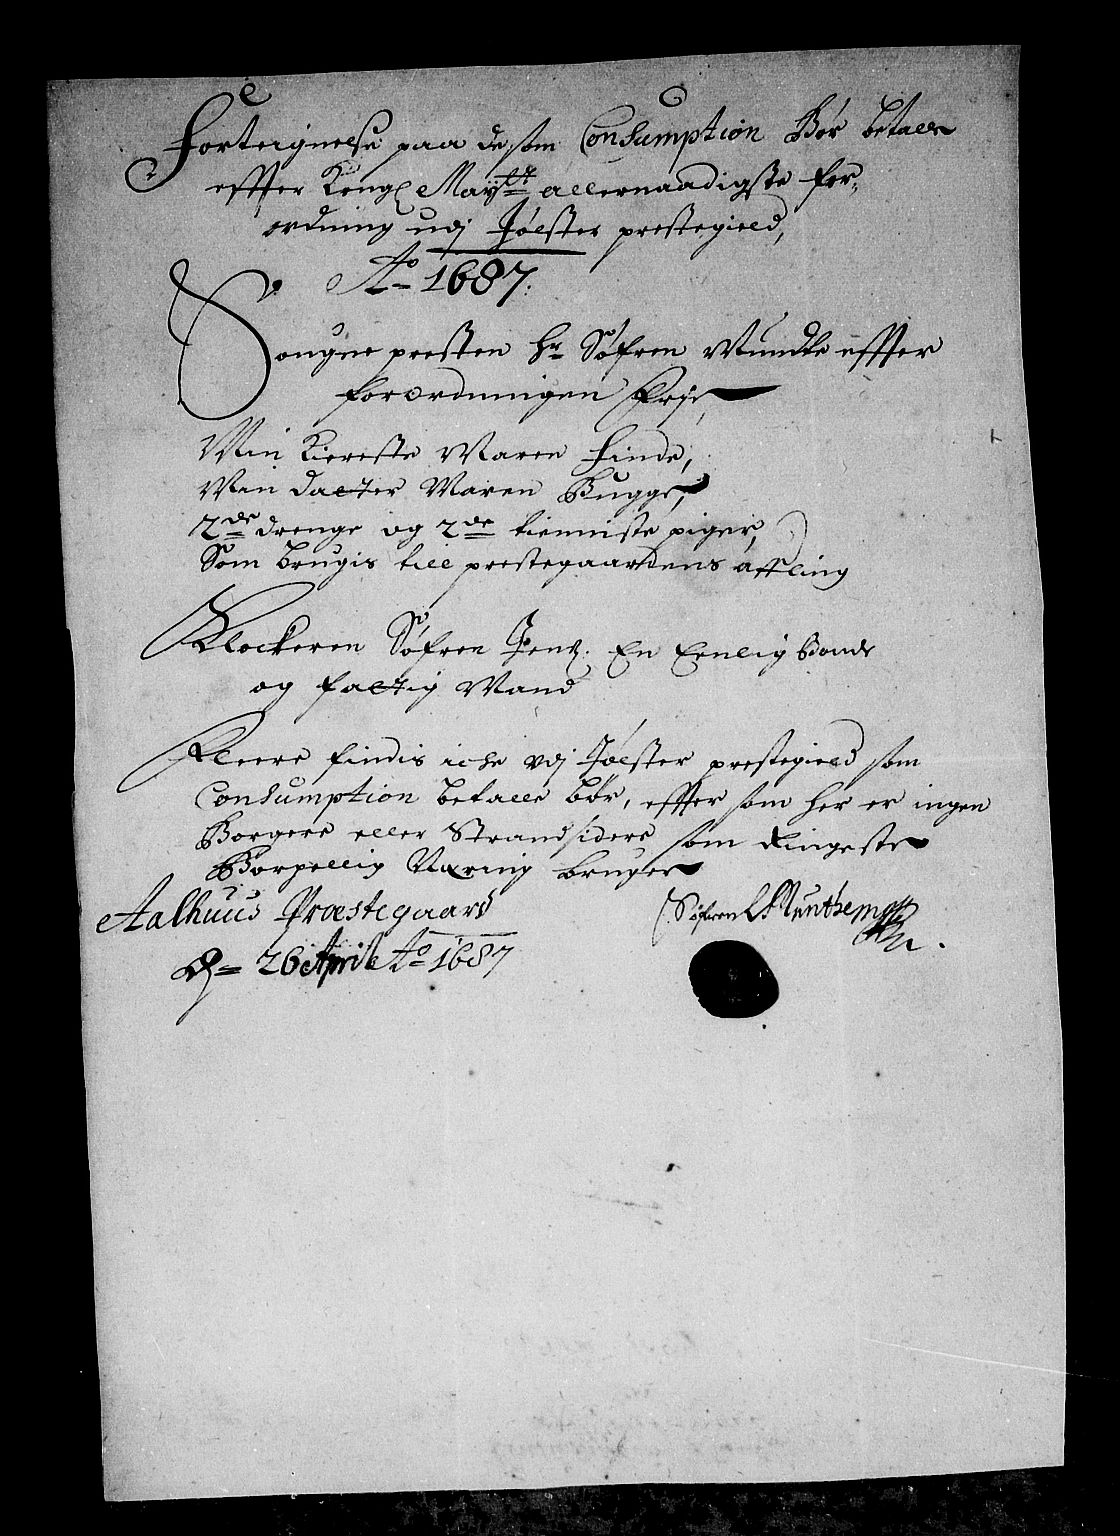 Forteignelse paa de som Consumption Bør betale
effter Kongl Maytt allernaadigste for
ordning udj Jølster prestegield,
Ao 1687:
Sougne presten Hr Søfren Munthe effter
forordningen Frj,
Min Kiereste Maren Finde,
Min datter Maren Bugge,
2de drenge og 2de tienniste piger,
Som brugis till prestegaardens affling
Klockeren Søfren Jens. En Eenlig Bonde
og fattig Mand
Fleere findis iche udj Jølster prestegield som
Consumption betalle bør, effter som her er ingen
Borgere eller Strandsidere som Ringeste
Borgellig Næring bruger
Aalhuus Præstegaard
D. 26 April Ao 1687
Søfren Munthe